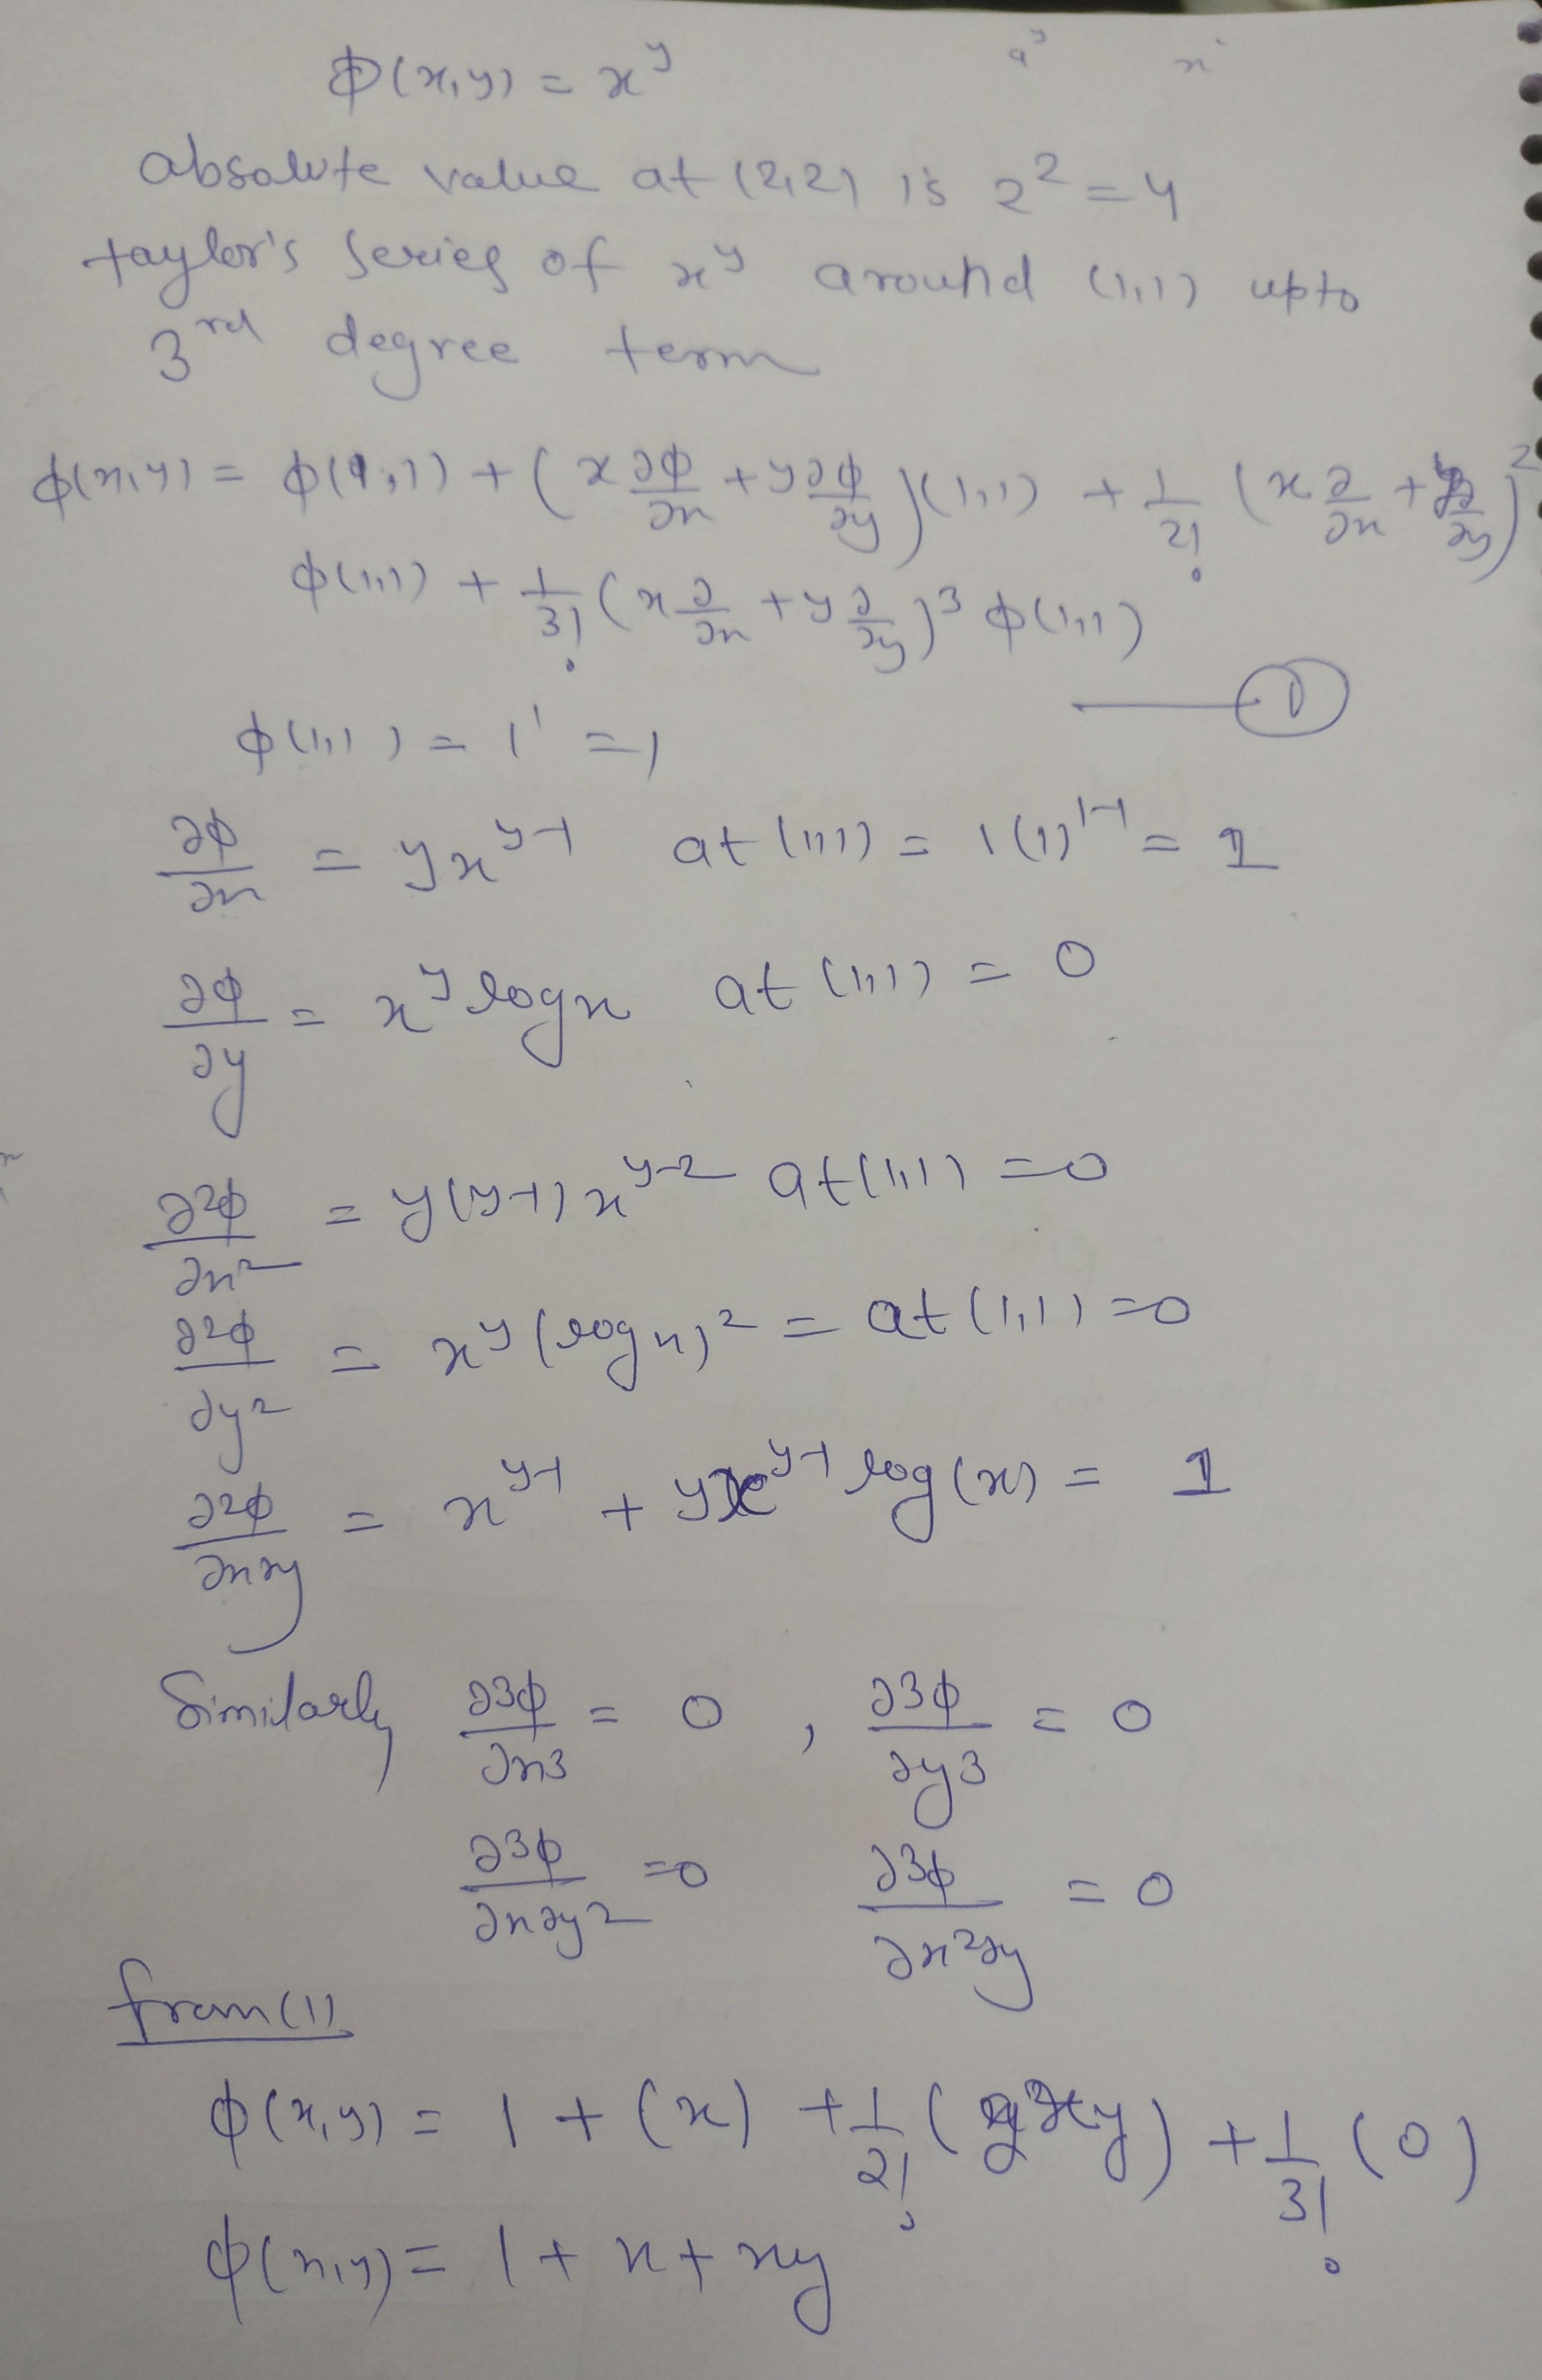 a^y x
ϕ(x,y) = x^y
absolute value at (2,2) is 2^2 = 4
taylor's series of x^y around (1,1) upto
3rd degree term
ϕ(x,y) = ϕ(1,1) + (x ∂ϕ/∂x + y ∂ϕ/∂y)(1,1) + 1/2! (x ∂/∂x + y ∂/∂y)^2
ϕ(1,1) + 1/3! (x ∂/∂x + y ∂/∂y)^3 ϕ(1,1)
— ①
ϕ(1,1) = 1^1 = 1
∂ϕ/∂x = y x^(y-1) at (1,1) = 1(1)^(1-1) = 1
∂ϕ/∂y = x^y log x at (1,1) = 0
∂2ϕ/∂x^2 = y(y-1) x^(y-2) at (1,1) = 0
∂2ϕ/∂y^2 = x^y (log x)^2 = at (1,1) = 0
∂2ϕ/∂x∂y = x^(y-1) + y x^(y-1) log(x) = 1
Similarly ∂3ϕ/∂x3 = 0 , ∂3ϕ/∂y3 = 0
∂3ϕ/∂x∂y2 = 0 ∂3ϕ/∂x^2∂y = 0
from (1)
ϕ(x,y) = 1 + (x) + 1/2! (2xy) + 1/3! (0)
ϕ(x,y) = 1 + x + xy